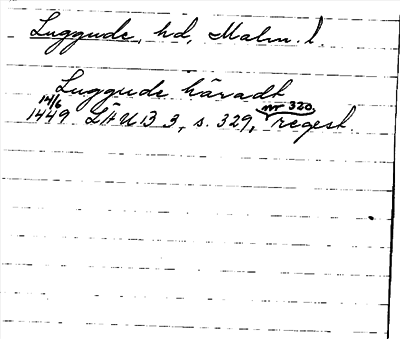 Luggude, hd, Malm. l.
Luggude häradt
14/6 nr 320,
1449 LÄUB 3, s. 329, regest.